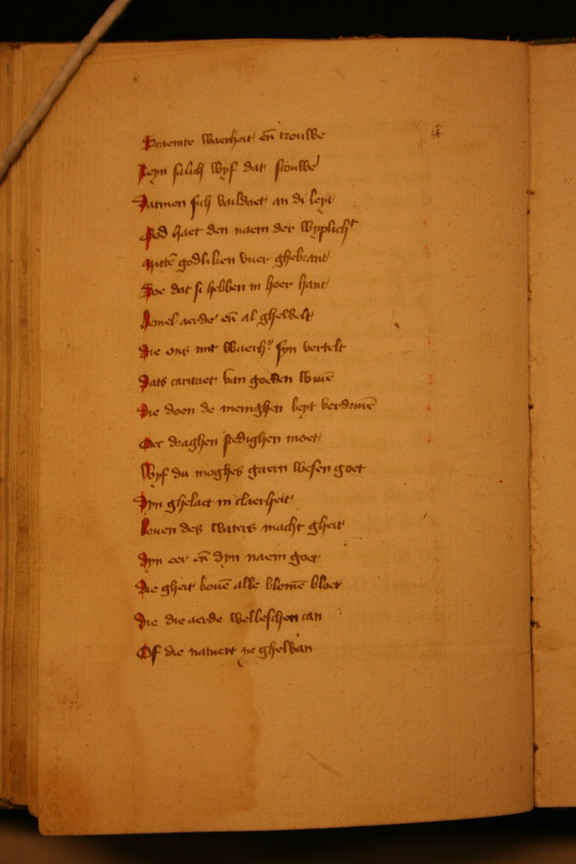 Scaemte waerheit en̄ trouwe
Reyn silich wyf dat scouwe
Datmen sich vaildaet an di leyt
God haet den naem der wyplicht
Mittē godliken vuer ghebrant
Soe dat si hebben in hoer hant
Hemel aerde en̄ al ghewelt
Die ons mit waerh. syn vertelt
Dats caritaet van goeden wiuē
Die doen de menighen leyt verdriuē
Der draghen stedighen moet
Wyf du moghes gaern wesen goet
Dyn ghelaet in claerheit
Bouen des waters macht gheit
Dyn eer en̄ dyn naem goet
Die gheit bouē alle blomē bloet
Die die aerde welleschen can
Of die natuert ye ghewan